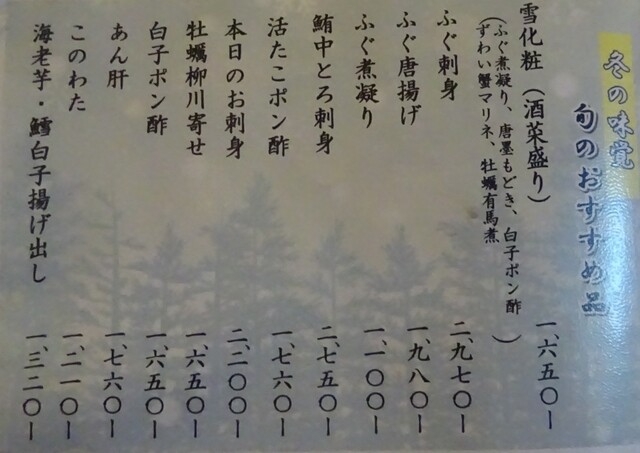 冬の味覚
旬のおすすめ品
雪化粧（酒菜盛り） 一、六五〇ー
（ふぐ煮凝り、唐墨もどき、白子ポン酢
ずわい蟹マリネ、牡蠣有馬煮）
ふぐ刺身 二、九七〇ー
ふぐ唐揚げ 一、九八〇ー
ふぐ煮凝り 一、一〇〇ー
鮪中とろ刺身 二、七五〇ー
活たこポン酢 一、七六〇ー
本日のお刺身 二、二〇〇ー
牡蠣柳川寄せ 一、六五〇ー
白子ポン酢 一、六五〇ー
あん肝 一、七六〇ー
このわた 一、二一〇ー
海老芋・鱈白子揚げ出し 一、三二〇ー